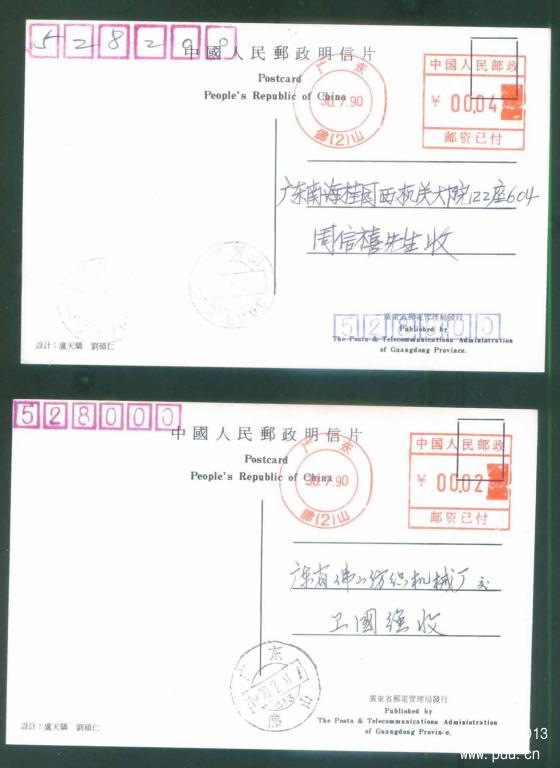 528200
中國人民郵政明信片
Postcard
People's Republic of China
广东
30.7.90
佛(2)山
中国人民邮政
¥ 00.04
邮资已付
广东南海桂园西机关大院122座604
周信禧先生收
528000
廣東省郵電管理局發行
Published by
The Posts & Telecommunications Administration
of Guangdong Province.
設計:盧天驕 劉碩仁
528000
中國人民郵政明信片
Postcard
People's Republic of China
广东
30.7.90
佛(2)山
中国人民邮政
¥ 00.02
邮资已付
广东省佛山纺织机械厂交
卫國強收
广东
佛山
廣東省郵電管理局發行
Published by
The Posts & Telecommunications Administration
of Guangdong Province.
設計:盧天驕 劉碩仁
www.puu.cn